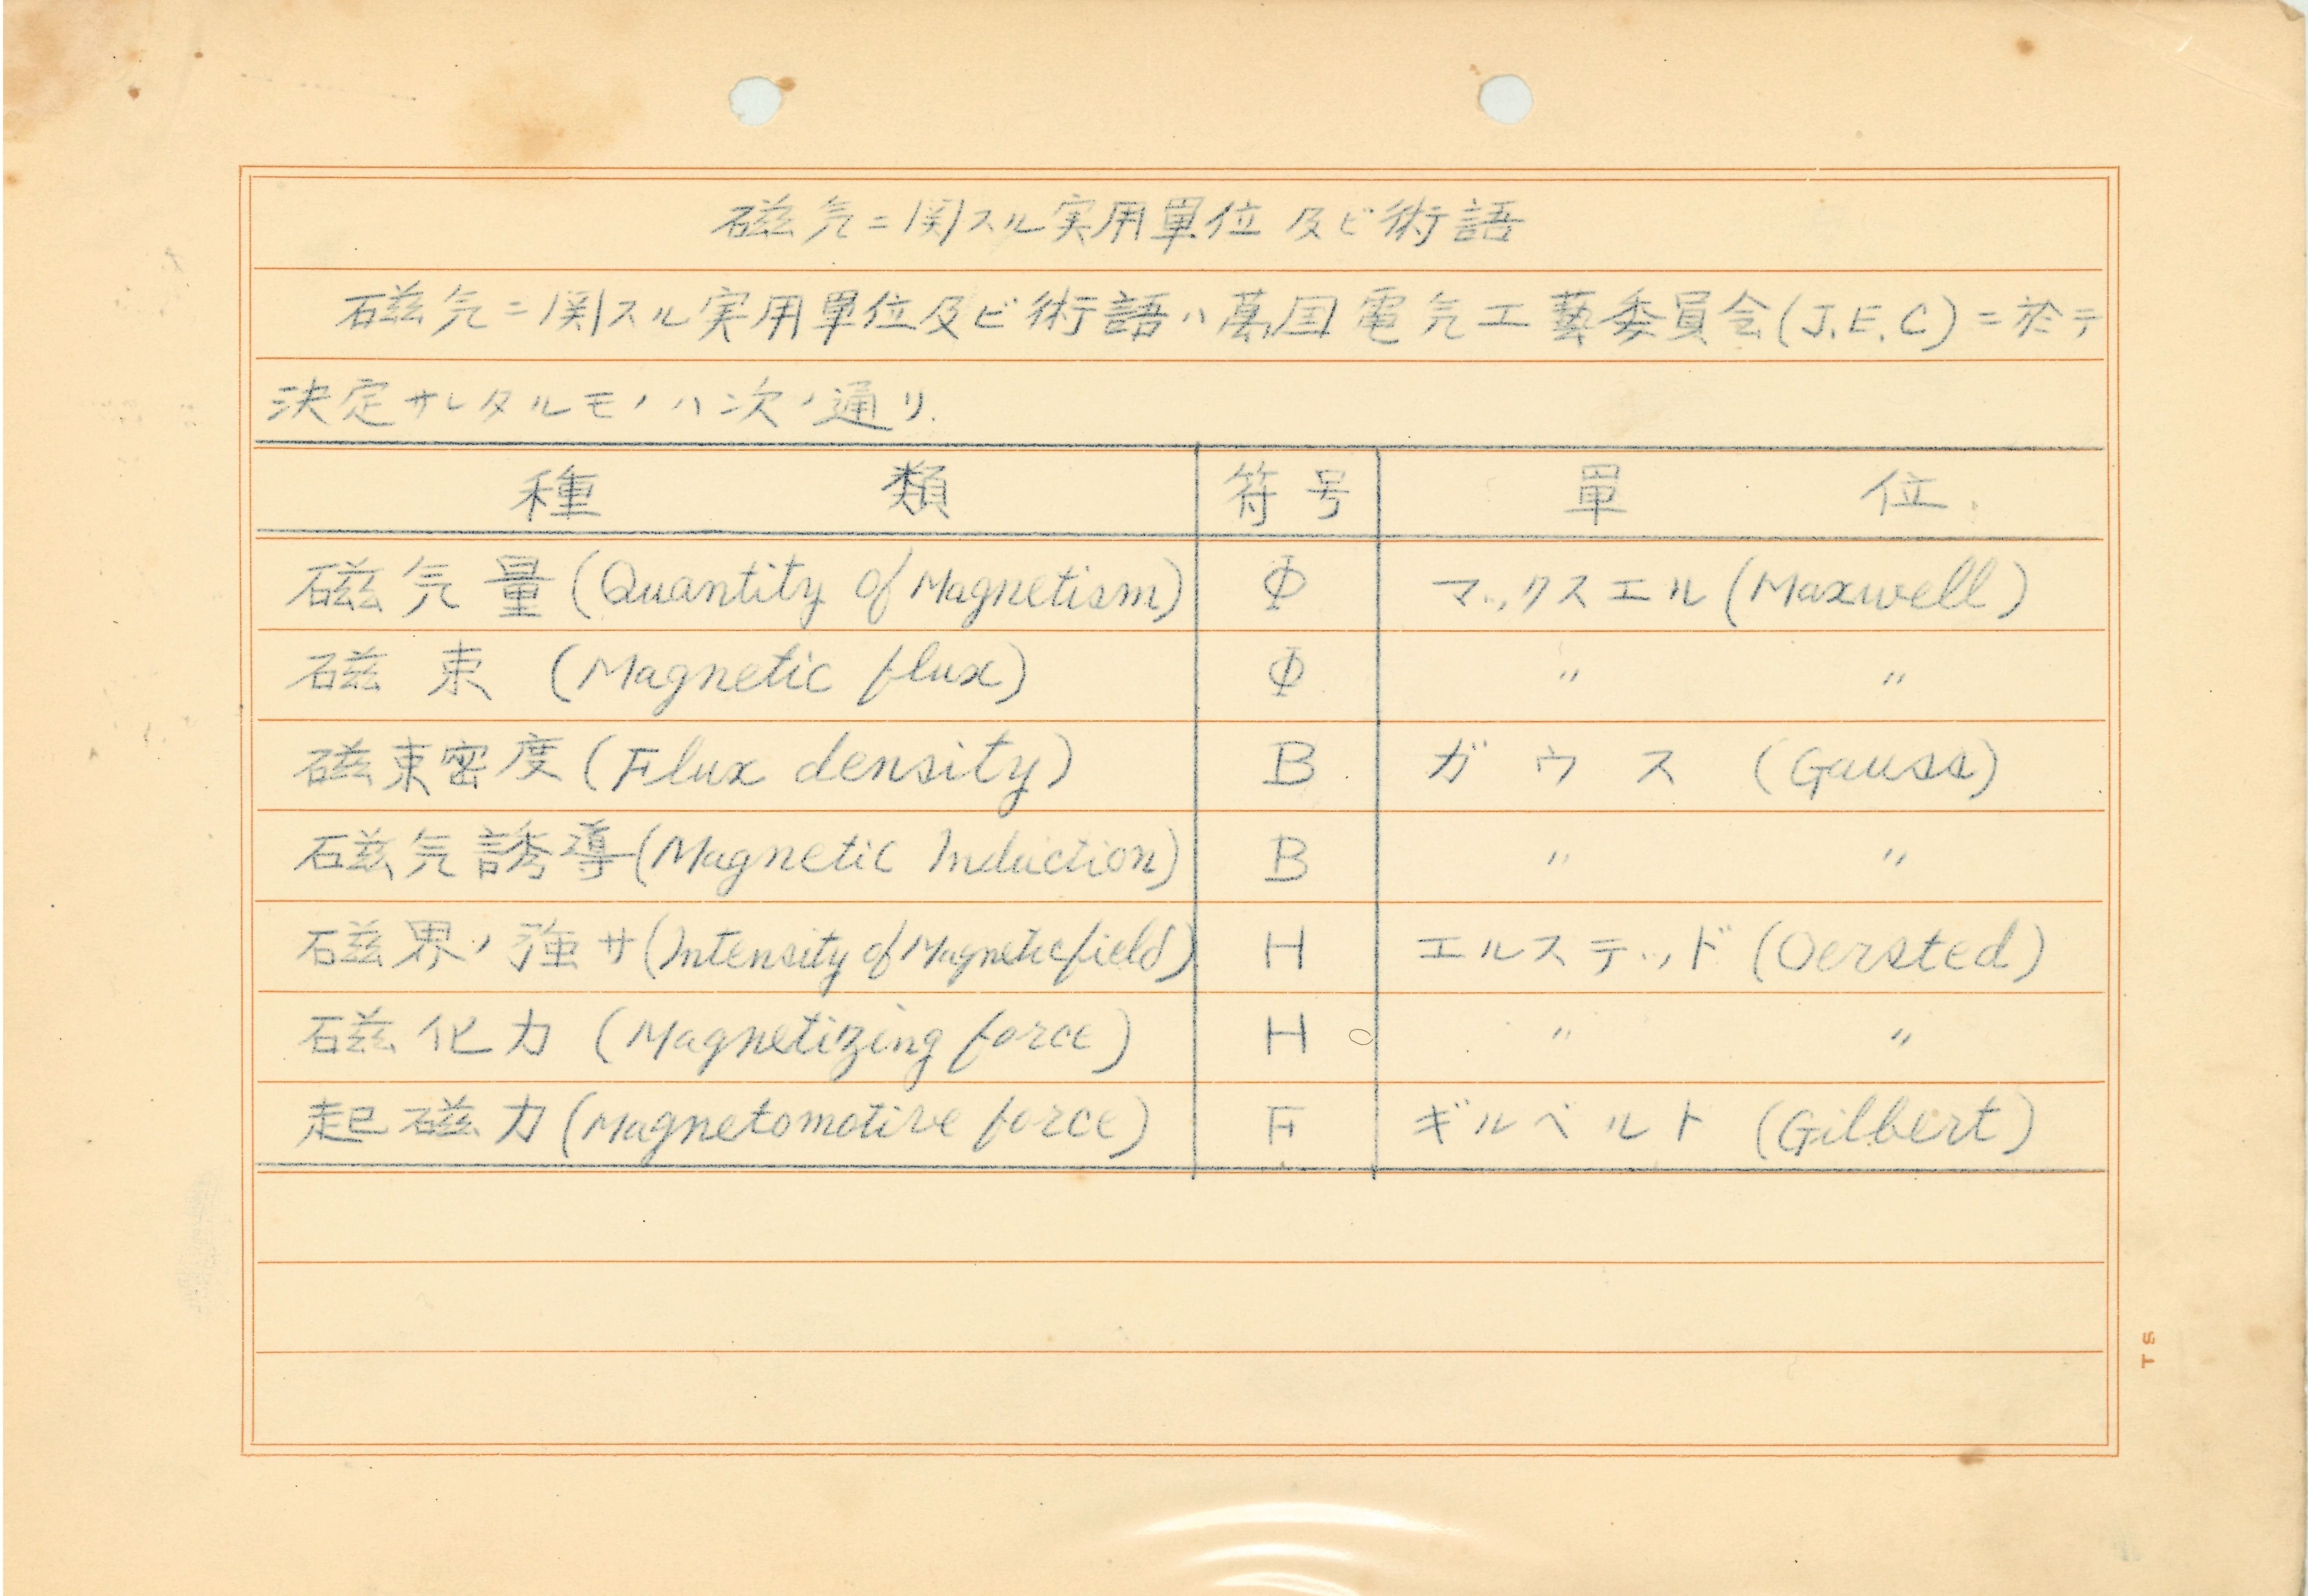 磁気ニ関スル実用單位及ビ術語
磁気ニ関スル実用單位及ビ術語ハ萬国電気工藝委員会(J.E.C)ニ於テ
決定サレタルモノハ次ノ通リ.
種類 符号 單位.
磁気量(Quantity of Magnetism) Φ マックスエル(Maxwell)
磁束 (Magnetic flux) Φ 〃 〃
磁束密度(Flux density) B. ガウス (Gauss)
磁気誘導(Magnetic Induction) B 〃 〃
磁界ノ強サ(Intensity of Magnetic field) H エルステッド(Oersted)
磁化力 (Magnetizing force) H 〃 〃
起磁力(Magnetomotive force) F ギルベルト (Gilbert)
TS